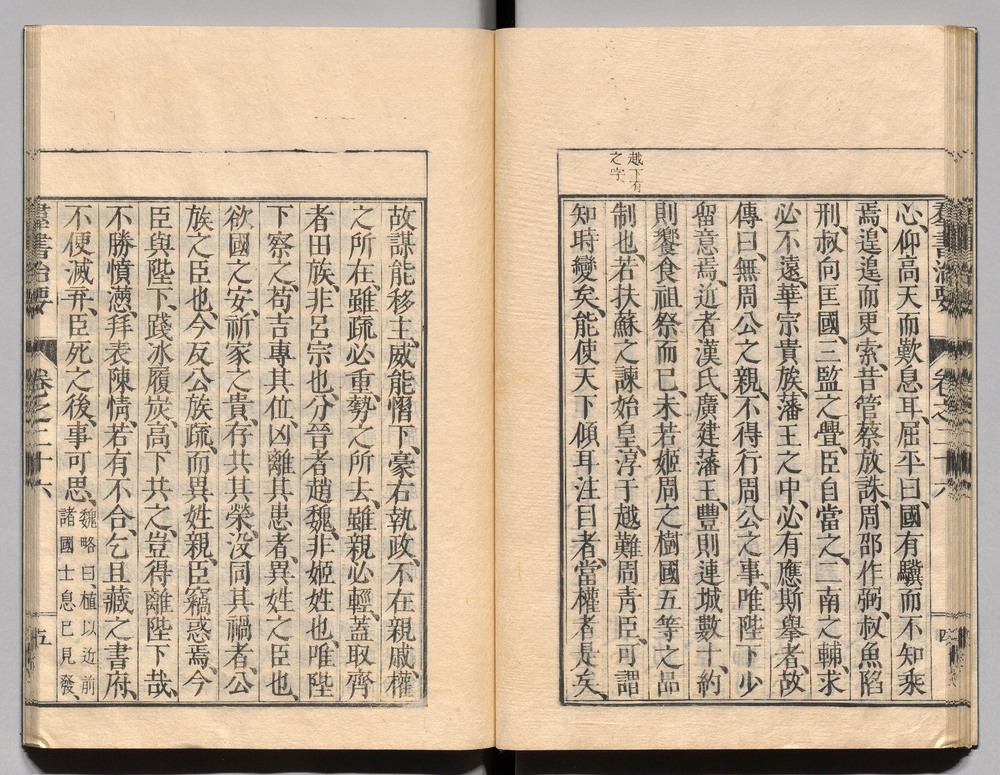 羣書治要 卷之二十六 四
越下有
之字
心仰高天而歎息耳屈平曰國有驥而不知乘
焉遑遑而更索昔管蔡放誅周邵作弼叔魚陷
刑叔向匡國三監之舋臣自當之二南之輔求
必不遠華宗貴族藩王之中必有應斯舉者故
傳曰無周公之親不得行周公之事唯陛下少
留意焉近者漢氏廣建藩王豐則連城數十約
則饗食祖祭而已未若姬周之樹國五等之品
制也若扶蘇之諫始皇淳于越難周青臣可謂
知時變矣能使天下傾耳注目者當權者是矣
故謀能移主威能慴下豪右執政不在親戚權
之所在雖疏必重勢之所去雖親必輕蓋取齊
者田族非呂宗也分晉者趙魏非姬姓也唯陛
下察之苟吉專其位凶離其患者異姓之臣也
欲國之安祈家之貴存共其榮沒同其禍者公
族之臣也今反公族疏而異姓親臣竊惑焉今
臣與陛下踐冰履炭高下共之豈得離陛下哉
不勝憤懣拜表陳情若有不合乞且藏之書府
不便滅弃臣死之後事可思魏略曰植以近前
諸國士息已見發
羣書治要 卷之二十六 五